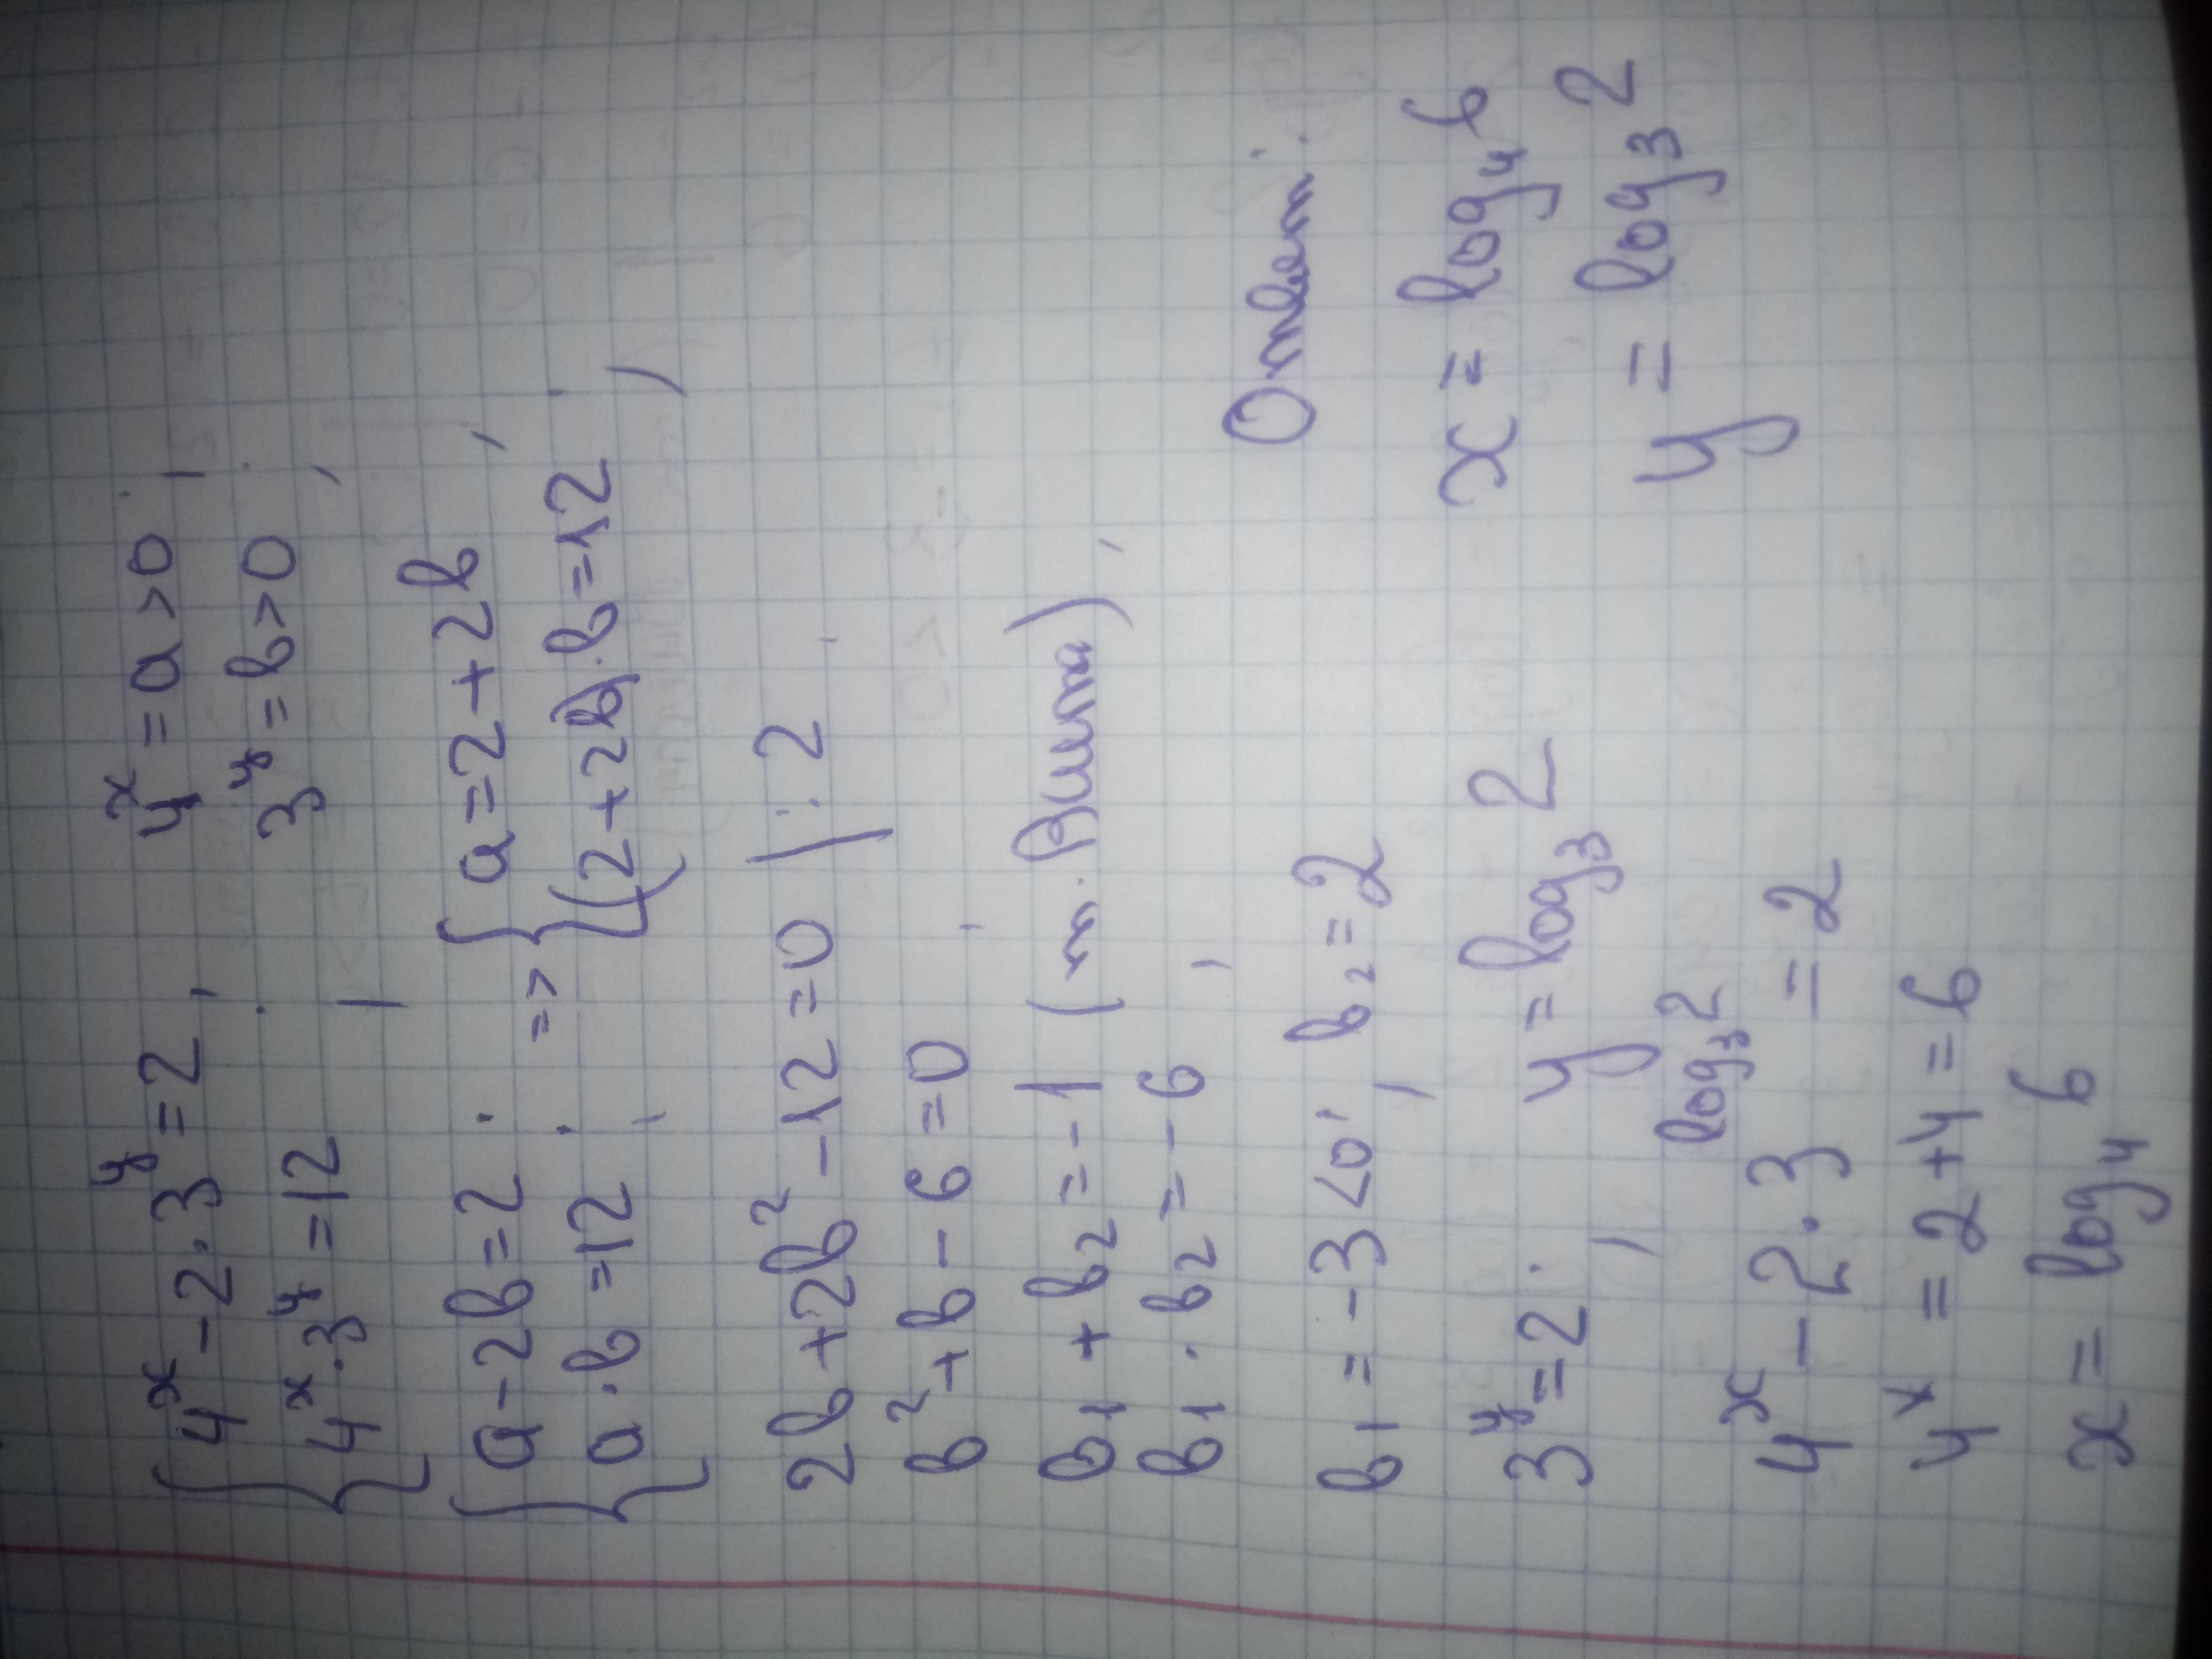 { 4ˣ - 2 · 3ʸ = 2 ;    4ˣ = a > 0 ;
{ 4ˣ · 3ʸ = 12 ;    3ʸ = b > 0 ;
{ a - 2b = 2 ; => { a = 2 + 2b ;
{ a · b = 12 ;    { (2 + 2b) · b = 12 ;
2b + 2b² - 12 = 0 | : 2 ;
b² + b - 6 = 0 ;
b₁ + b₂ = -1 (т. Виета) ;
b₁ · b₂ = -6 ;
b₁ = -3 < 0 ; b₂ = 2
3ʸ = 2 ;    y = log₃ 2
4ˣ - 2 · 3^(log₃ 2) = 2
4ˣ = 2 + 4 = 6
x = log₄ 6
Ответ:
x = log₄ 6
y = log₃ 2